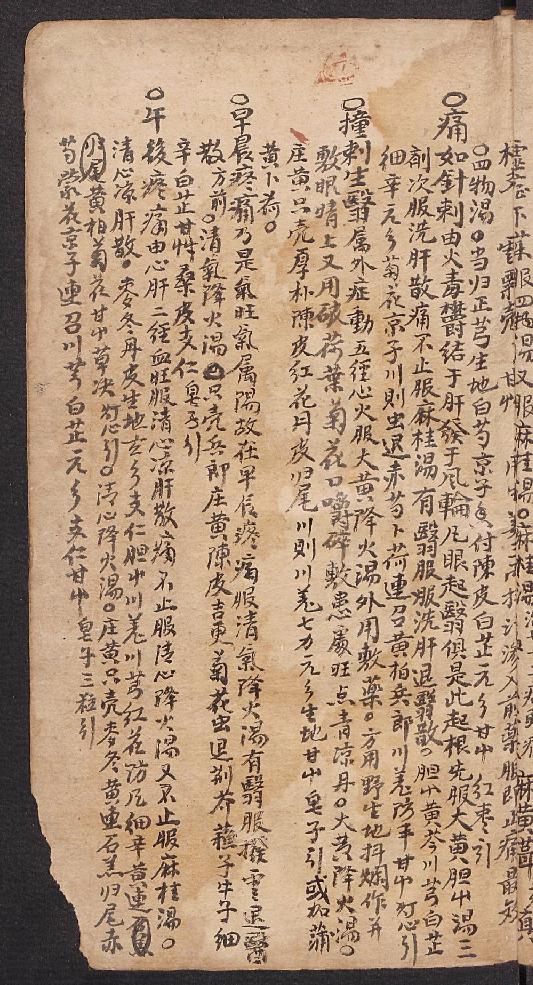 四物湯○当归正芎生地白芍京子付陳皮白芷元参甘艸红枣引
○痛如針刺由火毒鬱结于肝發于风輪凡眼起翳俱是此起根先服大黄胆艸湯二三
剂次服洗肝散痛不止服麻桂湯有翳服服洗肝退翳散○胆艸黄芩川芎白芷
细辛元参菊花京子川则虫退赤芍卜荷連召黄柏兵郎川羌防丰甘艸灯心引
○撞刺生翳属外症動五經心火服大黄降火湯外用敷藥○方用野生地抖爛作并
敷眼睛上又用破荷葉菊花口嚼碎敷患處旺点青凉丹○大黄降火湯○
庄黄只壳厚朴陳皮红花丹皮归尾川则川羌七力元参生地甘艸皂子引或加蒲
黄卜荷○
○早晨疼痛乃是氣旺氣属陽故在早辰疼痛服清氣降火湯有翳服撥雲退翳
散方前○清氣降火湯○只壳兵郎庄黄陳皮吉更菊花虫退荆芥蘓子牛子细
辛白芷甘艸桑皮支仁皂子引
○午後疼痛由心肝二經血旺服清心凉肝散痛不止服清心降火湯又不止服麻桂湯○
清心凉肝散○麥冬丹皮生地玄参支仁胆艸川羌川芎红花防风细辛黄連
归尾黄柏菊花甘艸草决灯心引○清心降火湯○庄黄只壳麥冬黄連石羔归尾赤
芍蒙花京子連召川芎白芷元参支仁甘艸皂子三粒引